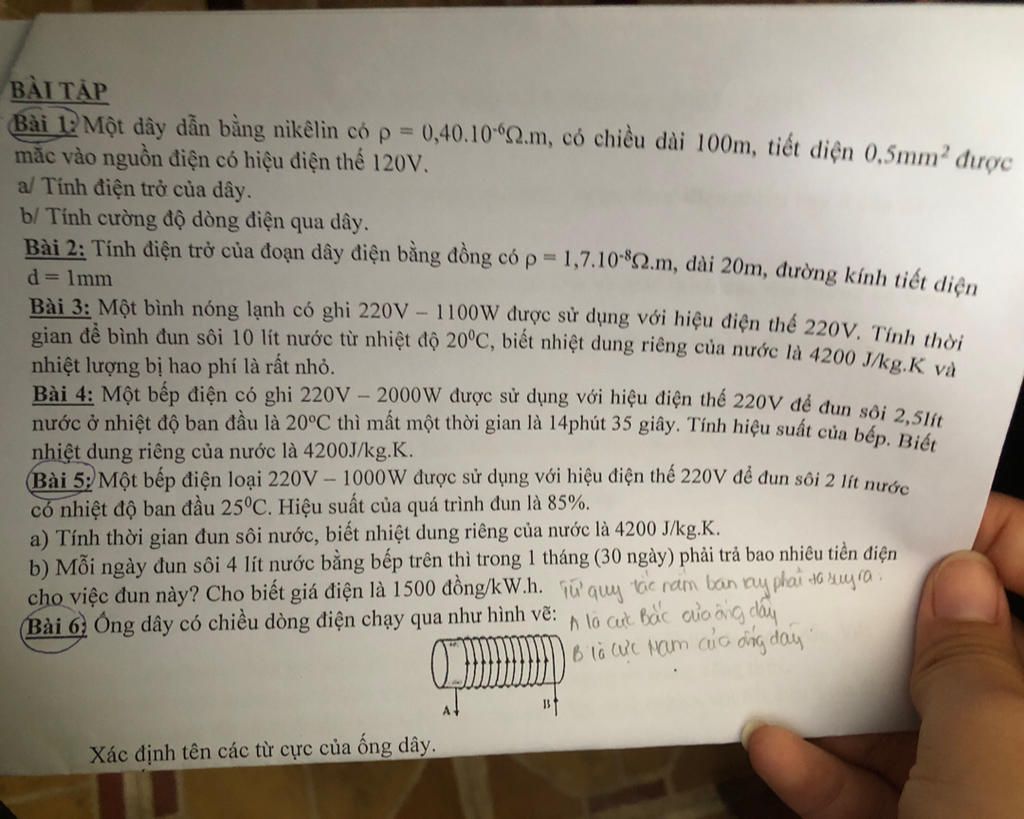 BÀI TẬP
Bài 1: Một dây dẫn bằng nikêlin có ρ = 0,40.10⁻⁶Ω.m, có chiều dài 100m, tiết diện 0,5mm² được
mắc vào nguồn điện có hiệu điện thế 120V.
a/ Tính điện trở của dây.
b/ Tính cường độ dòng điện qua dây.
Bài 2: Tính điện trở của đoạn dây điện bằng đồng có ρ = 1,7.10⁻⁸Ω.m, dài 20m, đường kính tiết diện
d = 1mm
Bài 3: Một bình nóng lạnh có ghi 220V – 1100W được sử dụng với hiệu điện thế 220V. Tính thời
gian để bình đun sôi 10 lít nước từ nhiệt độ 20⁰C, biết nhiệt dung riêng của nước là 4200 J/kg.K và
nhiệt lượng bị hao phí là rất nhỏ.
Bài 4: Một bếp điện có ghi 220V – 2000W được sử dụng với hiệu điện thế 220V để đun sôi 2,5lít
nước ở nhiệt độ ban đầu là 20ºC thì mất một thời gian là 14phút 35 giây. Tính hiệu suất của bếp. Biết
nhiệt dung riêng của nước là 4200J/kg.K.
Bài 5: Một bếp điện loại 220V – 1000W được sử dụng với hiệu điện thế 220V để đun sôi 2 lít nước
có nhiệt độ ban đầu 25⁰C. Hiệu suất của quá trình đun là 85%.
a) Tính thời gian đun sôi nước, biết nhiệt dung riêng của nước là 4200 J/kg.K.
b) Mỗi ngày đun sôi 4 lít nước bằng bếp trên thì trong 1 tháng (30 ngày) phải trả bao nhiêu tiền điện
cho việc đun này? Cho biết giá điện là 1500 đồng/kW.h. Từ quy tắc nắm bàn tay phải ta suy ra.
Bài 6: Ống dây có chiều dòng điện chạy qua như hình vẽ: A là cực Bắc của ống dây
B là cực Nam của ống dây.
A B
Xác định tên các từ cực của ống dây.